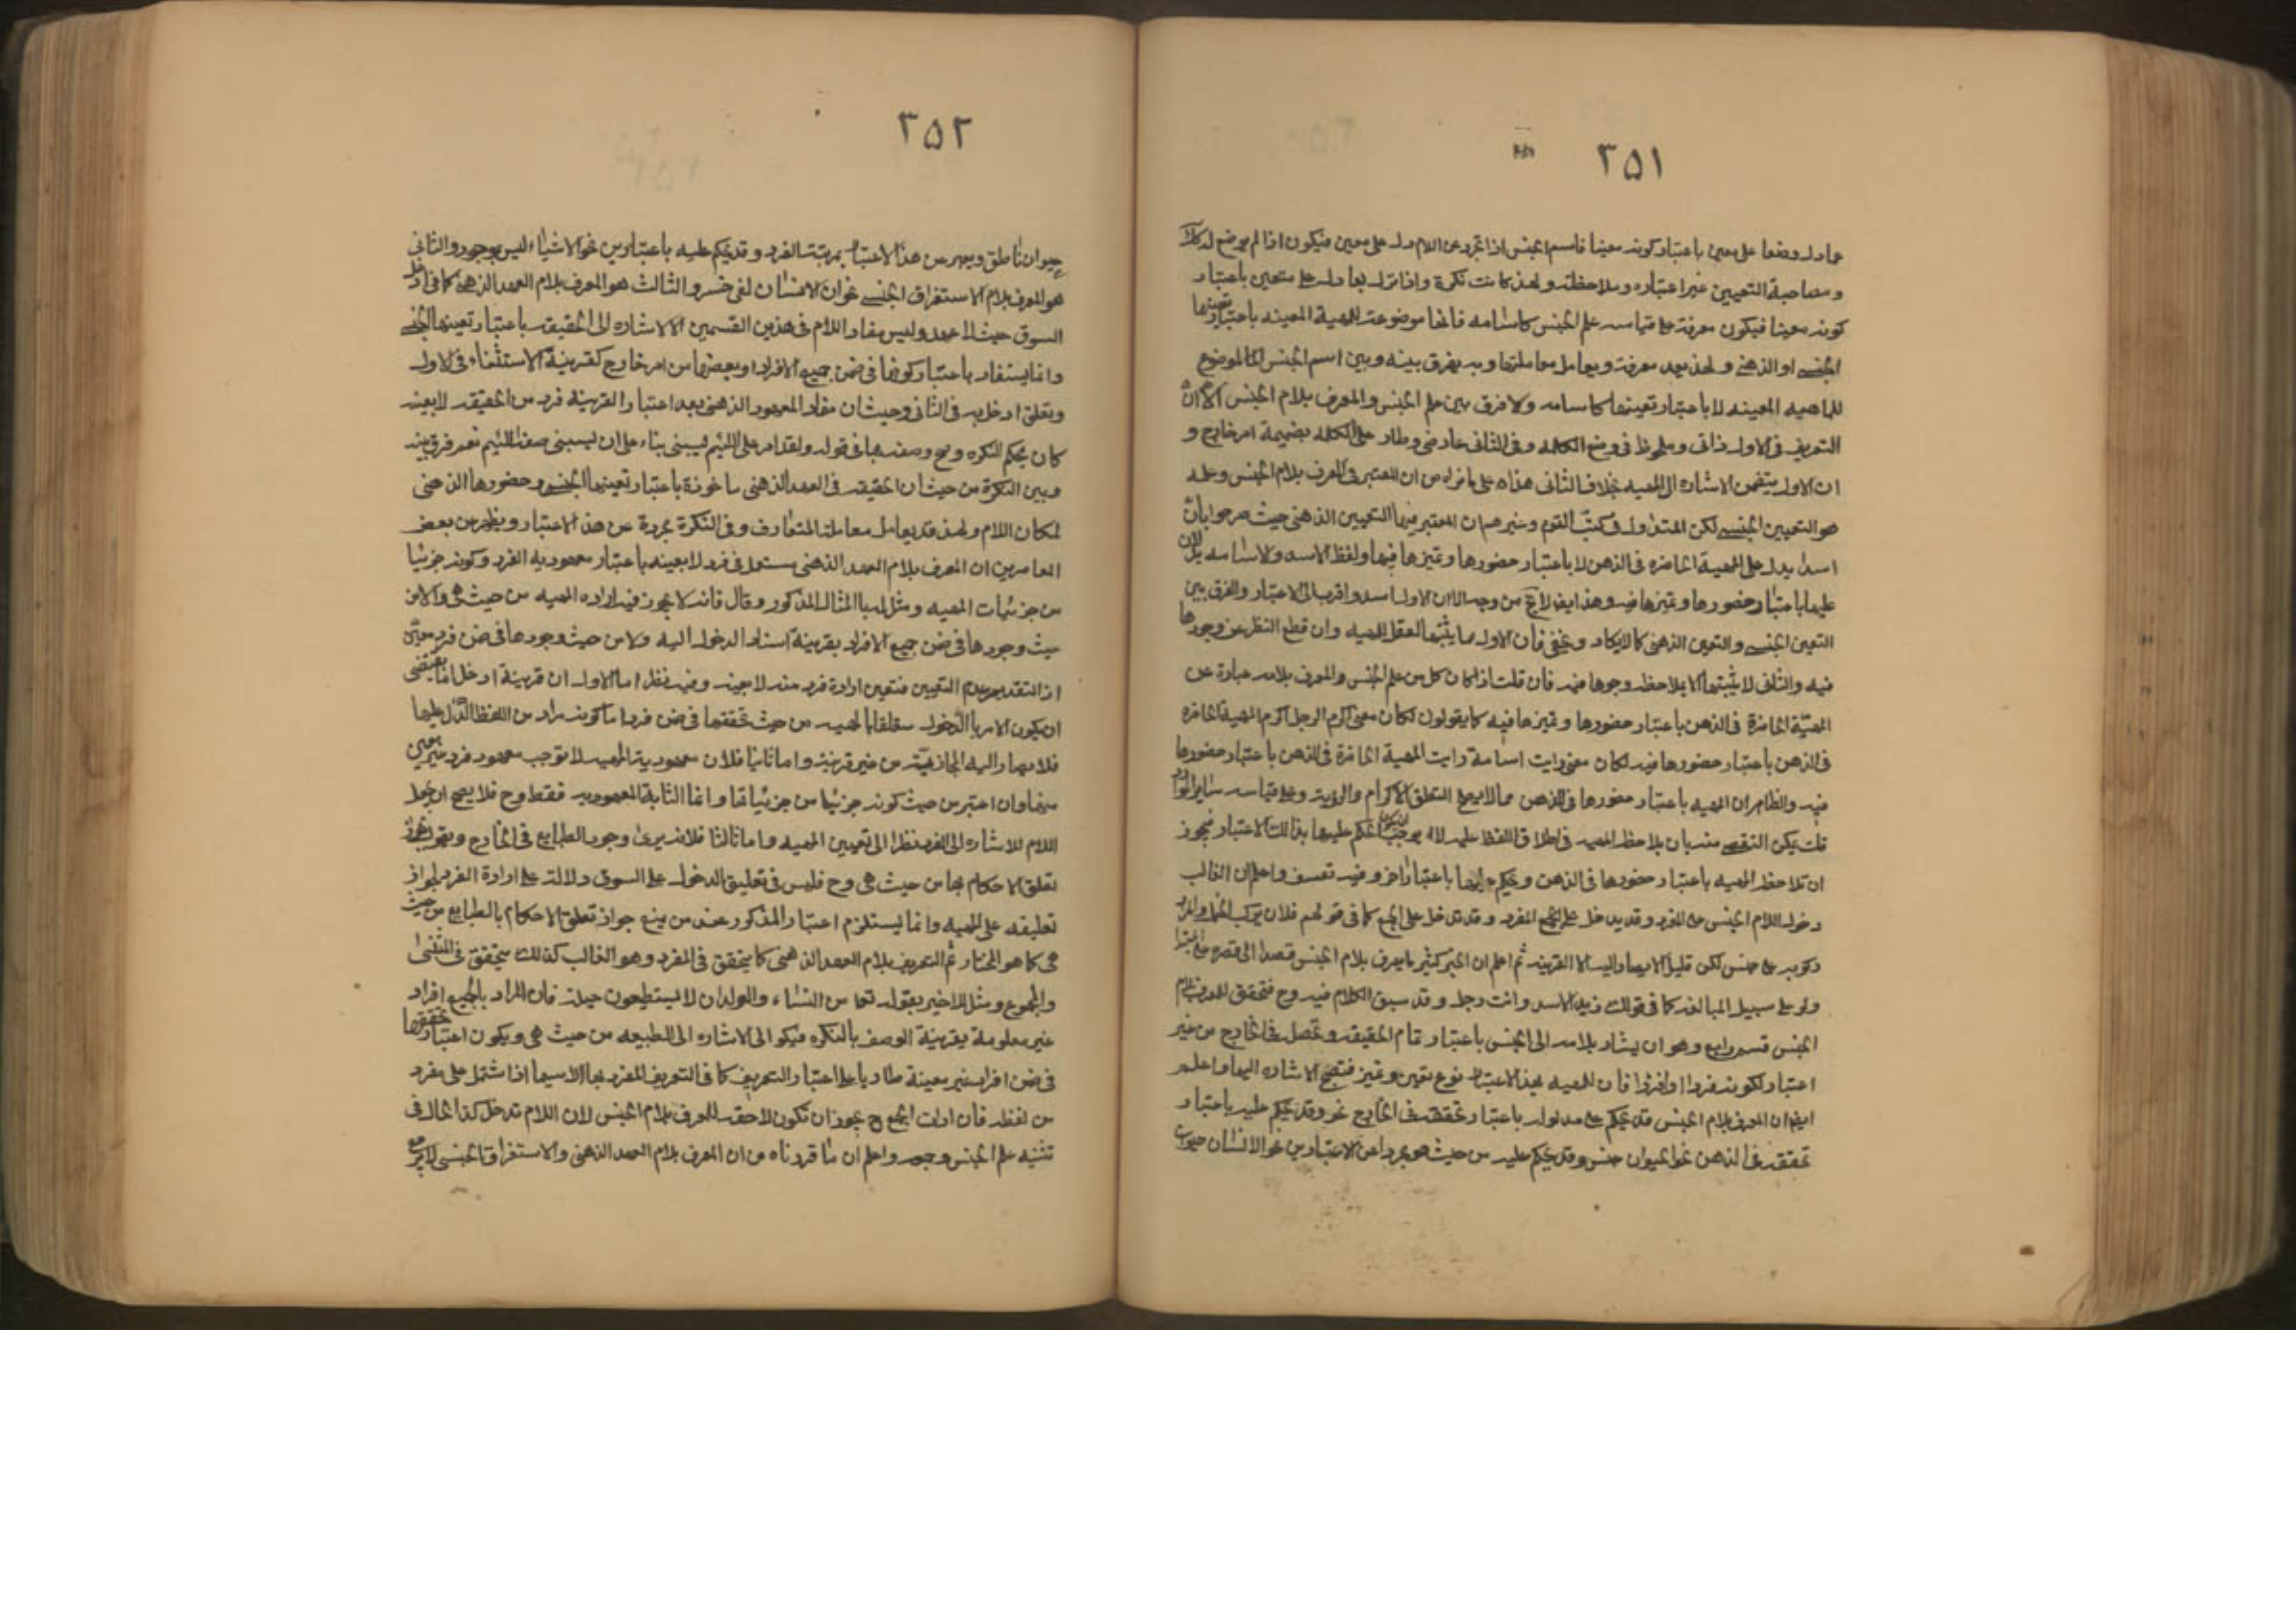 ٣٥١
ما دل وضعا على معين باعتبار كونه معينا فاسم الجنس اذا تجرد عن اللام دل على معين فيكون اذا لم يوضع له
ومصاحبة التعيين غير اعتباره وملاحظته ولهذا كانت نكرة واذا دل على متعين باعتبار
كونه معينا فيكون معرفة على قياس علم الجنس كاسامه فانها موضوعة للمهية المعينه باعتبار تعينها
الجنسى او الذهنى ولهذا يعد معرفة ويعامل معاملتها وبه يفرق بينه وبين اسم الجنس الموضوع
للماهيه المعينه لا باعتبار تعينها كما سامه ولا فرق بين علم الجنس والمعرف بلام الجنس الا ان
التعريف فى الاول ذاتى وملحوظ فى وضع الكلمه وفى الثانى عارضى وطار على الكلمه بضميمة امر خارج و
ان الاول يتضمن الاشاره الى المهيه بخلاف الثانى هذا على ما نراه من ان المعتبر فى المعرف بلام الجنس وعلمه
هو التعيين الجنسى لكن المتداول فى كتب القوم وغيرهم ان المعتبر فيهما التعيين الذهنى حيث صرحوا بان
اسدا يدل على المهية الحاضره فى الذهن لا باعتبار حضورها وتميزها فيها ولفظ الاسد والاسامه يدلان
عليها باعتبار حضورها وتميزها فيه وهذا ايضا لا يخ من وجه الا ان الاول اسد واقرب الى الاعتبار والفرق بين
التعين الجنسى والتعين الذهنى كما لا يكاد يخفى فان الاول مما يثبتها العقل للمهيه وان قطع النظر عن وجودها
فيه والثانى لا يثبتها الا بملاحظة وجودها فيه فان قلت اذا كان كل من علم الجنس والمعرف بلامه عبارة عن
المهيّة الحاضرة فى الذهن باعتبار حضورها وتميزها فيه كما يقولون لكان معنى اكرم الرجل اكرم المهية الحاضره
فى الذهن باعتبار حضورها فيه لكان معنى رايت اسامة رايت المهية الحاضرة فى الذهن باعتبار حضورها
فيه والظاهر ان المهيه باعتبار حضورها فى الذهن مما لا يصلح لتعلق الاكرام والرؤية وعلى قياسه ساير الموارد
قلت يمكن التفصى منه بان ملاحظة المهيه فى اطلاق اللفظ عليه لا يوجب ان يكون الحكم عليها بذالك الاعتبار فيجوز
ان تلاحظ المهيه باعتبار حضورها فى الذهن ويحكم عليها باعتبار اخر وفيه تعسف واعلم ان الغالب
دخول اللام الجنس على المفرد وقد يدخل على الجمع المفرد وقد تدخل على الجمع كما فى قولهم فلان يركب الخيل
على جنس لكن قليل الا يصار اليه الا لقرينه ثم اعلم ان الخبر كثيرا ما يعرف بلام الجنس قصدا الى قصره على المبتدا
ولو على سبيل المبالغه كما فى قولك زيد الاسد وانت رجل وقد سبق الكلام فيه وح فتحقق للمعرف بلام
الجنس قسم رابع وهو ان يشار بلامه الى الجنس باعتبار تمام الحقيقة وتحصل فى الخارج من غير
اعتبار لكونه فردا او افرادا فان للمهيه بهذا الاعتبار نوع تعين وتميز فتصح الاشاره اليها واعلم
ايضا ان المعرف بلام الجنس قد يحكم على مدلوله باعتبار تحققه فى الخارج نحو وقد يحكم عليه باعتبار
تحققه فى الذهن نحو الحيوان جنس وقد يحكم عليه من حيث هو مجردا عن الاعتبارين نحو الانسان حيوان
٣٥٢
حيوان ناطق ويعبر عن هذا الاعتبار بمرتبة الفرد وقد يحكم عليه باعتبارين نحو الاشياء ليس بموجود والثانى
هو المعرف بلام الاستغراق الجنسى نحو ان الانسان لفى خسر والثالث هو المعرف بلام العهد الذهنى كما فى ادخل
السوق حيث لا عهد وليس مفاد اللام فى هذين القسمين الا الاشاره الى الحقيقه باعتبار تعينها الجنسى
وانما يستفاد باعتبار كونها فى ضمن جميع الافراد او بعضها من امر خارج كقرينة الاستثناء فى الاول
وتعلق ادخل به فى الثانى وحيث ان مفاد المعهود الذهنى بعد اعتبار القرينة فرد من الحقيقه لا بعينه
كان بحكم النكره وصح وصفه بها فى قوله ولقد امر على اللئيم يسبنى بناء على ان يسبنى صفة للئيم نعم فرق بينه
وبين النكرة من حيث ان الحقيقه فى العهد الذهنى ماخوذة باعتبار تعينها الجنسى وحضورها الذهنى
لمكان اللام ولهذا قد يعامل معاملة المتعارف وفى النكرة مجردة عن هذا الاعتبار ويظهر من بعض
المعاصرين ان المعرف بلام العهد الذهنى مستعمل فى فرد لا بعينه باعتبار معهوديه الفرد وكونه جزئيا
من جزئيات المهيه ومثل لها بالمثال المذكور وقال فانه لا يجوز فيه اراده المهيه من حيث هى ولا من
حيث وجودها فى ضمن جميع الافراد بقرينة اسناد الدخول اليه ولا من حيث وجودها فى ضمن فرد معيّن
اذ التقدير عدم التعيين فتعين ارادة فرد منه لا بعينه وفيه نظر اما الاول ان قرينة ادخل انما يقتضى
ان يكون الامر بالدّخول متعلقا بالمهيه من حيث تحققها فى ضمن فرد ما كونه مراد من اللفظ الدّال عليها
فلا يصار اليه المجاز من غير قرينة واما ثانيا فلان معهودية المهيه لا توجب معهود فرد غير معين
منها وان اعتبر من حيث كونه جزئيا من جزئياتها وانما الثابتة المعهوديه فقط وح فلا يصح ان يجعل
اللام للاشاره الى الفرد نظرا الى تعيين المهيه واما ثالثا فلانه يرى وجود الطبايع فى الخارج
تعلق الاحكام بها من حيث هى وح فليس فى تعليق الدخول على السوق دلالة على ارادة الفرد لجواز
تعليقه على المهيه وانما يستلزم اعتبار المذكور عند من يمنع جواز تعلق الاحكام بالطبايع من حيث
هى كما هو المختار ثم التعريف بلام العهد الذهنى كما يتحقق فى المفرد وهو الغالب كذلك يتحقق فى المثنى
والمجموع ومثل للاخير بقوله تعا من النساء والولدان لا يستطيعون حيلة فان المراد بالجميع افراد
غير معلومة بقرينة الوصف بالنكره فيكو الى الاشاره الى الطبيعه من حيث هى ويكون اعتبار تحققها
فى ضمن افراد غير معينة طاريا على اعتبار التعريف كما فى التعريف المفرد بها لا سيما اذا اشتمل على مفرد
من لفظه فان ادات الجمع ح يجوز ان تكون لاحقه للمعرف بلام الجنس لان اللام تدخل كذا الحال فى
تثنيه علم الجنس وجمعه واعلم ان ما قررناه من ان المعرف بلام العهد الذهنى والاستغراق الجنسى